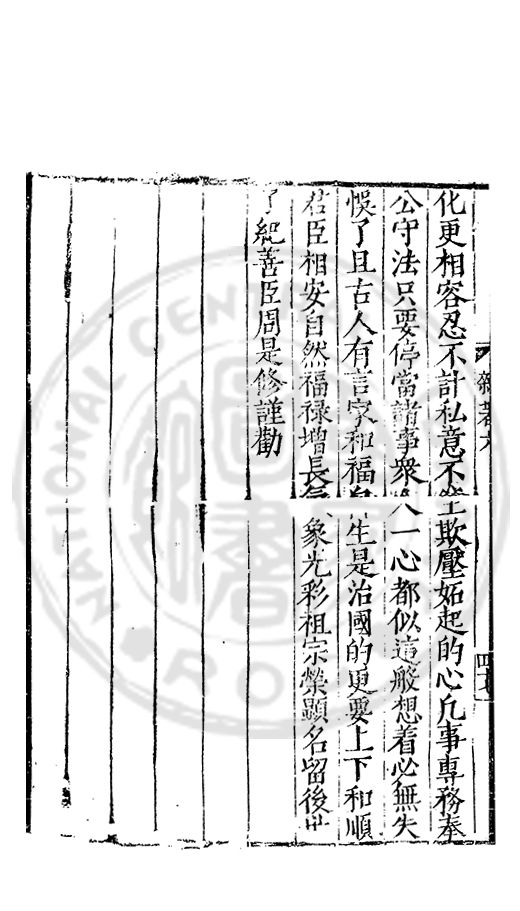 化更相容忍不計私意不欺壓妬起的心凡事專務奉
公守法只要停當諸事衆人一心都似這般想着必無失
悞了且古人有言家和福自生是治國的更要上下和順
君臣相安自然福禄增長氣象光彩祖宗榮顯名留後世
了紀善臣周是修謹勸
雜著六